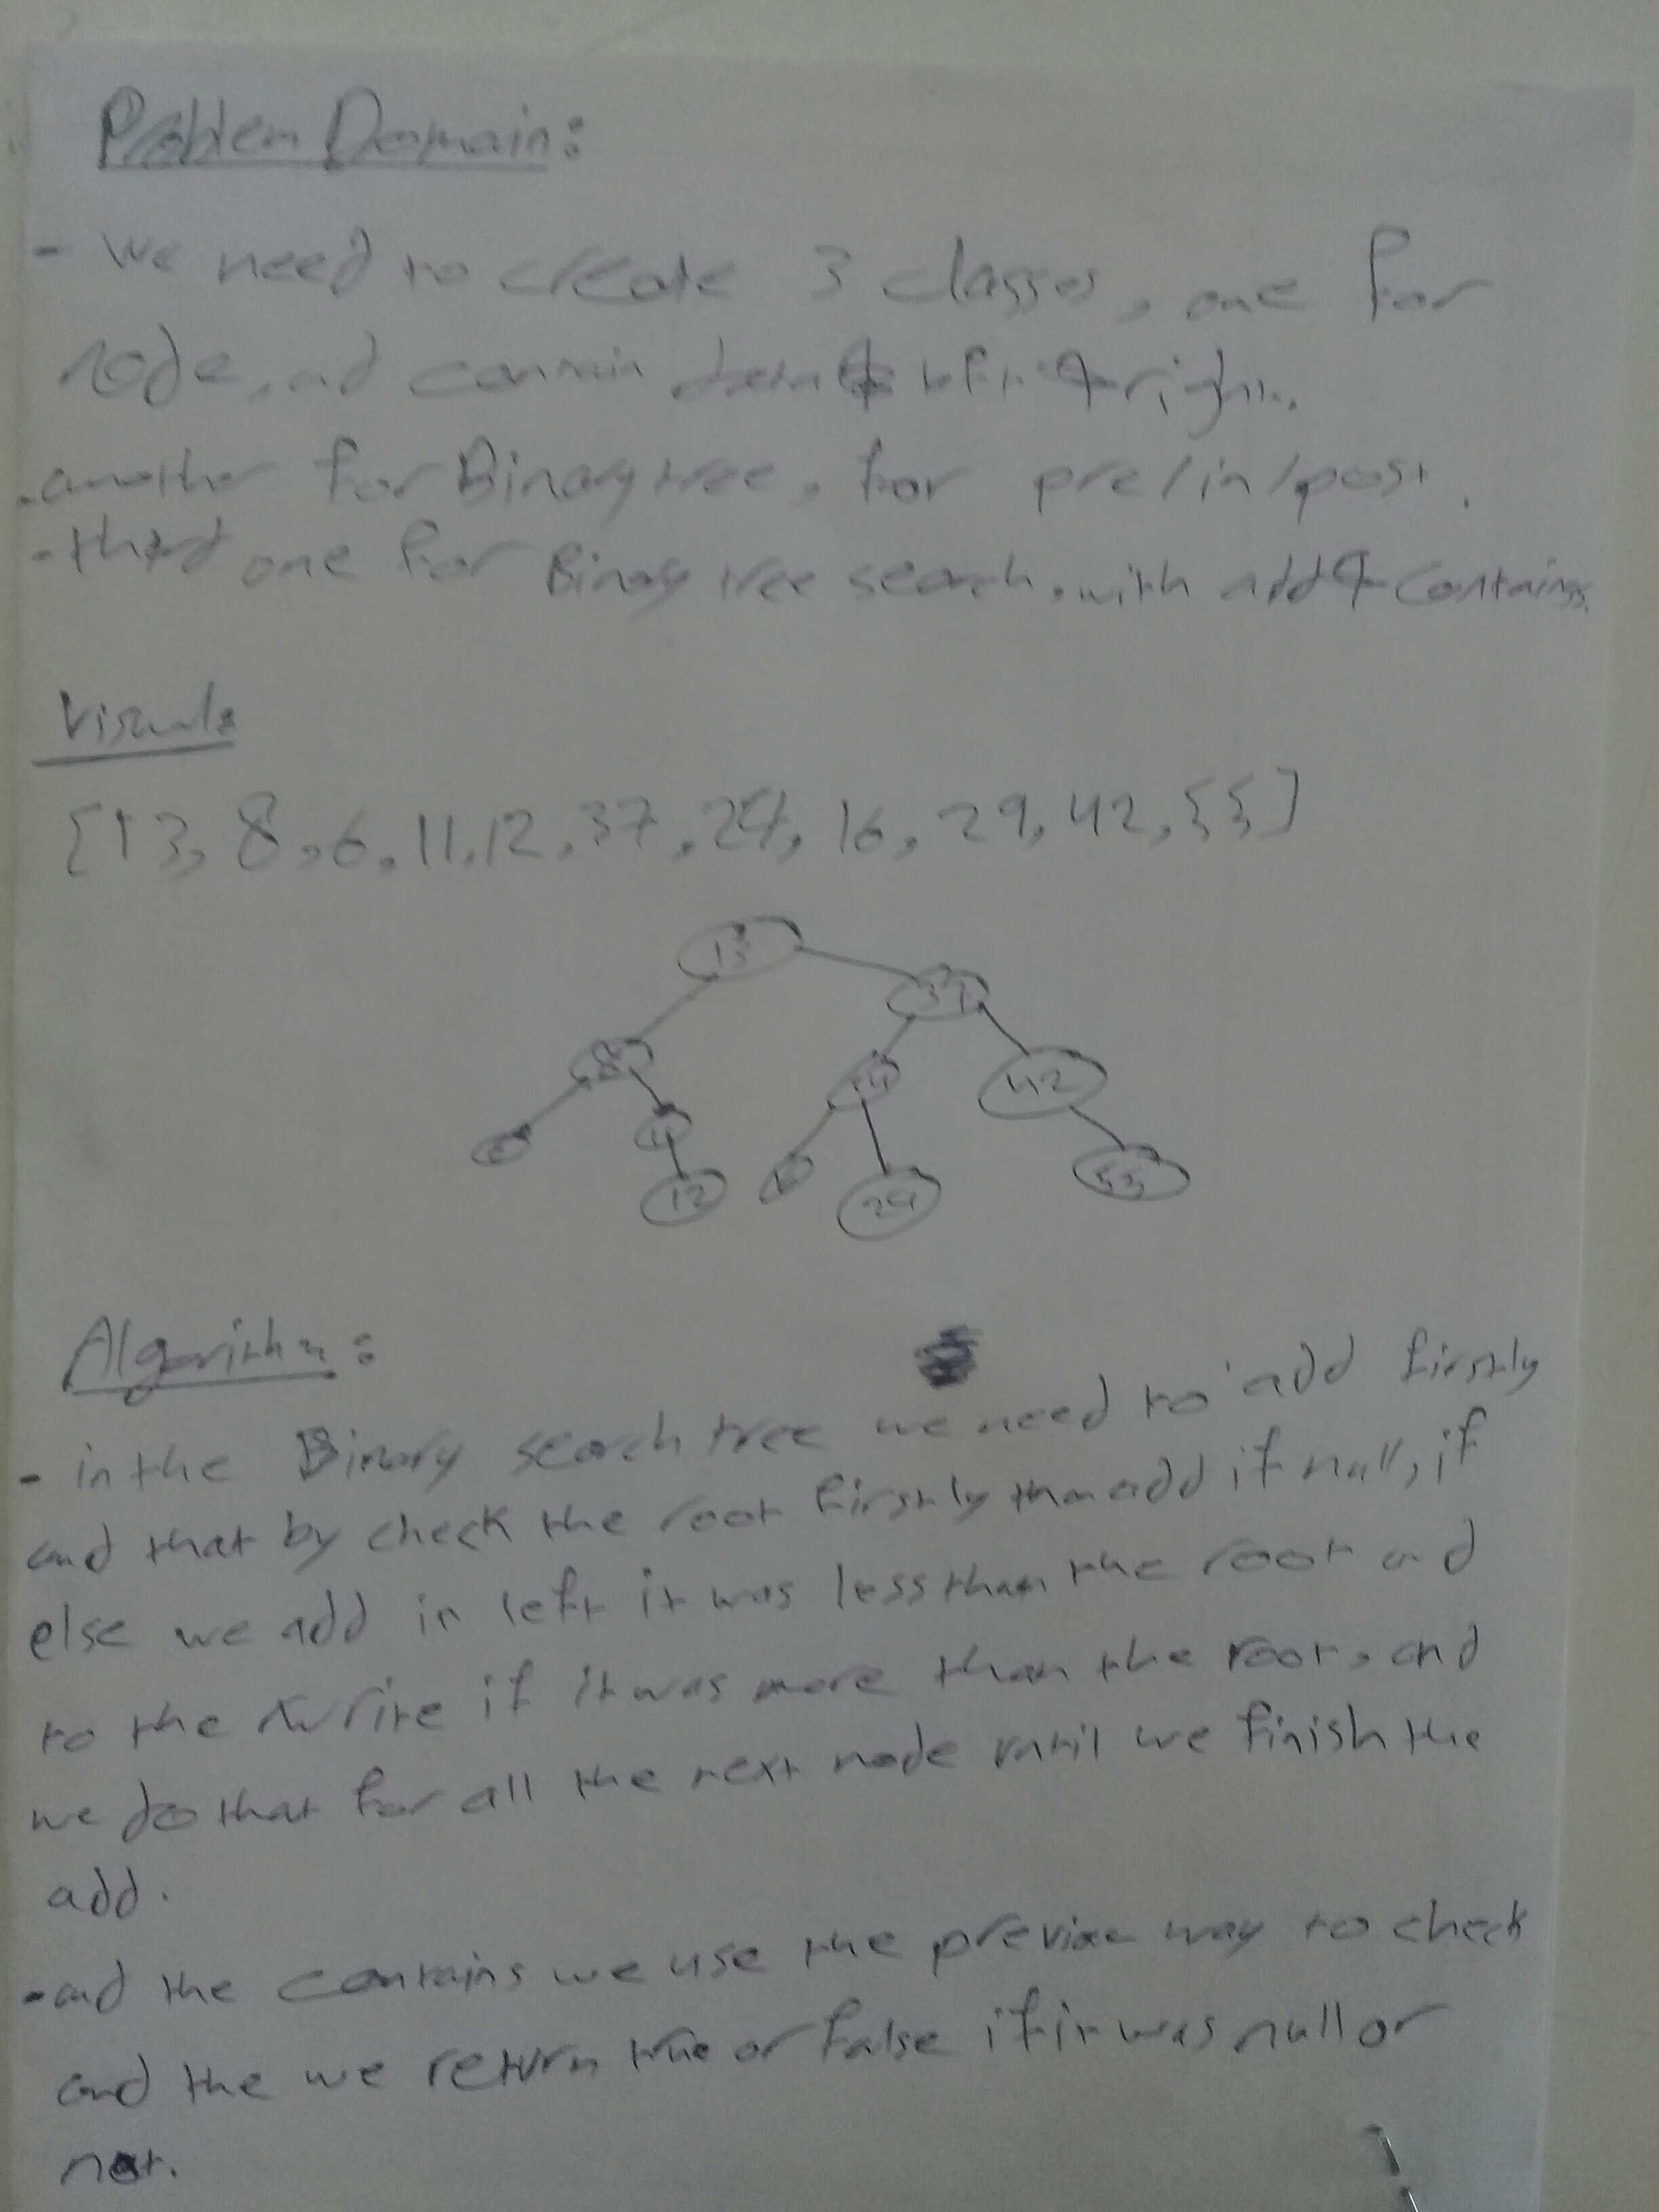 Problem Domain:
- we need to create 3 classes, one for
node, and contain data & left & right.
.another for Binary tree, for pre/in/post.
- third one for Binary tree search, with add & contains.
Visuals
[13, 8, 6, 11, 12, 37, 24, 16, 29, 42, 55]
13
37
8
24
42
6
11
16
12
29
55
Algorithm:
- in the Binary search tree we need to add firstly
and that by check the root firstly then add if null, if
else we add in left it was less than the root and
to the write if it was more than the root, and
we do that for all the next node until we finish the
add.
- and the contains we use the way to check
and the we return true or false if it was null or
not.